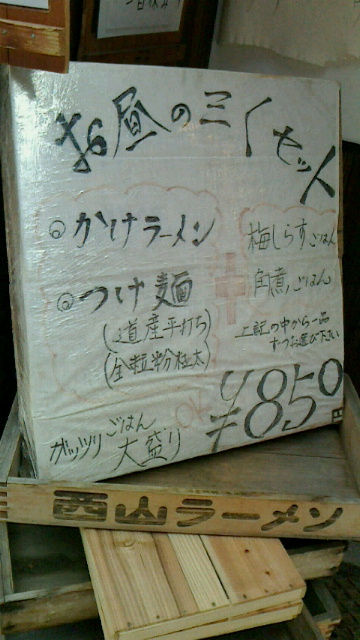 お昼の三くセット
◎かけラーメン
◎つけ麺
(道産平打ち)
(全粒粉極太)
+
梅しらすごはん
角煮ごはん
上記の中から一品
ずつお選び下さい
OK
ガッツリごはん
大盛り
¥850
西山ラーメン